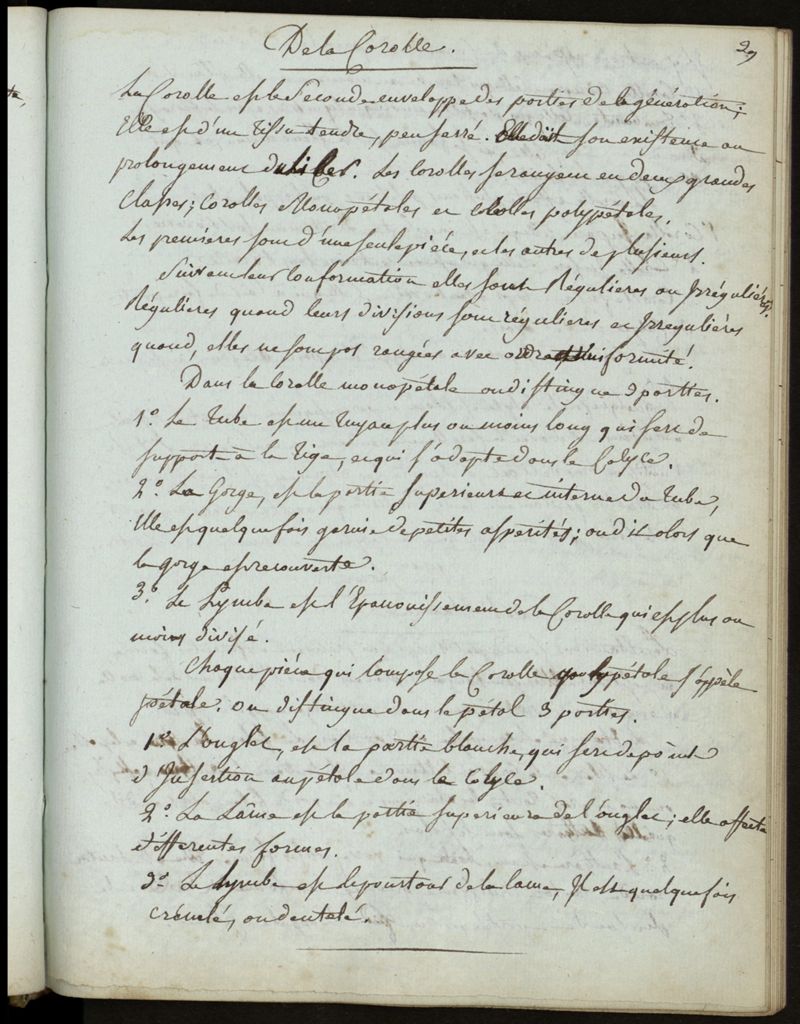 De la Corolle.
29
La Corolle est le Seconde enveloppe des parties de la génération;
Elle est d'un tissu tendre, peu serré. Elle doit son existence au
prolongement du Liber. Les Corolles se rangent en deux grandes
Classes; Corolles Monopétales et Corolles polypétales.
Les premieres sont d'une seule piéce, et les autres de plusieurs.
Suivant leur Conformation elles sont Régulieres ou Irréguliéres.
Régulieres quand leurs divisions sont régulieres et Irreguliéres
quand, elles ne sont pas rangées avec ordre et uniformité.
Dans la Corolle monopétale on distingue 3 parties.
1.º Le Tube est un Tuyau plus ou moins long qui sert de
support à la Tige, et qui s'adapte dans le Calyce.
2.º La Gorge, est la partie superieure et interne du Tube,
Elle est quelque fois garnie de petites asperités; on dit alors que
la gorge est recouverte.
3.º Le Lymbe est l'Epanouissement de la Corolle qui est plus ou
moins divisé.
Chaque piéce qui Compose la Corolle polypétale s'appèle
pétale. on distingue dans le pétal 3 parties.
1.º L'onglet, est la partie blanche, qui sert de point
d'Insertion au pétale dans le Calyce.
2.º La Lâme est la partie superieure de l'onglet; elle affecte
différentes formes.
3.º Le Lymbe est le pourtour de la lame, Il est quelque fois
crénelé, ou dentelé.